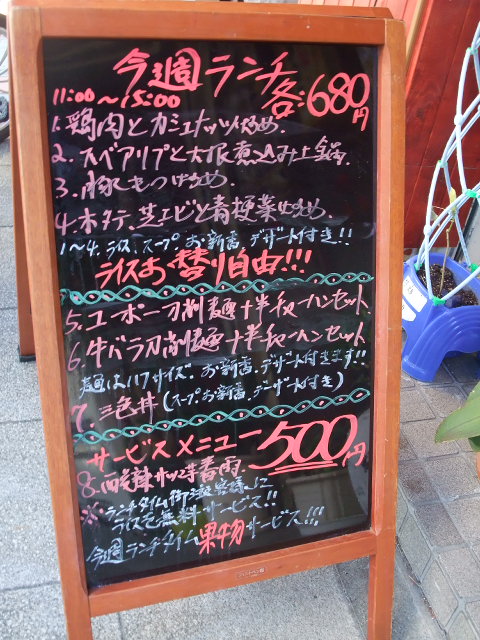 今週ランチ
11:00～15:00 各:680円
1.鶏肉とカシュナッツ炒め.
2.スペアリブと大根煮込み土鍋.
3.豚もつ炒め.
4.ホタテ.芝エビと青梗菜炒め.
1～4.ライス.スープ.お新香.デザート付き!!
ライスお替り自由!!!
5.ユーポー刀削麺+半チャーハンセット.
6.牛バラ刀削麺+半チャーハンセット
麺はハーフサイズ.お新香.デザート付きます!!
7.三色丼(スープお新香.デザート付き)
サービスメニュー500円
8.四川麻辣
※ランチタイム御来店皆様に
ライスを無料サービス!!
今週ランチタイム果物サービス!!!